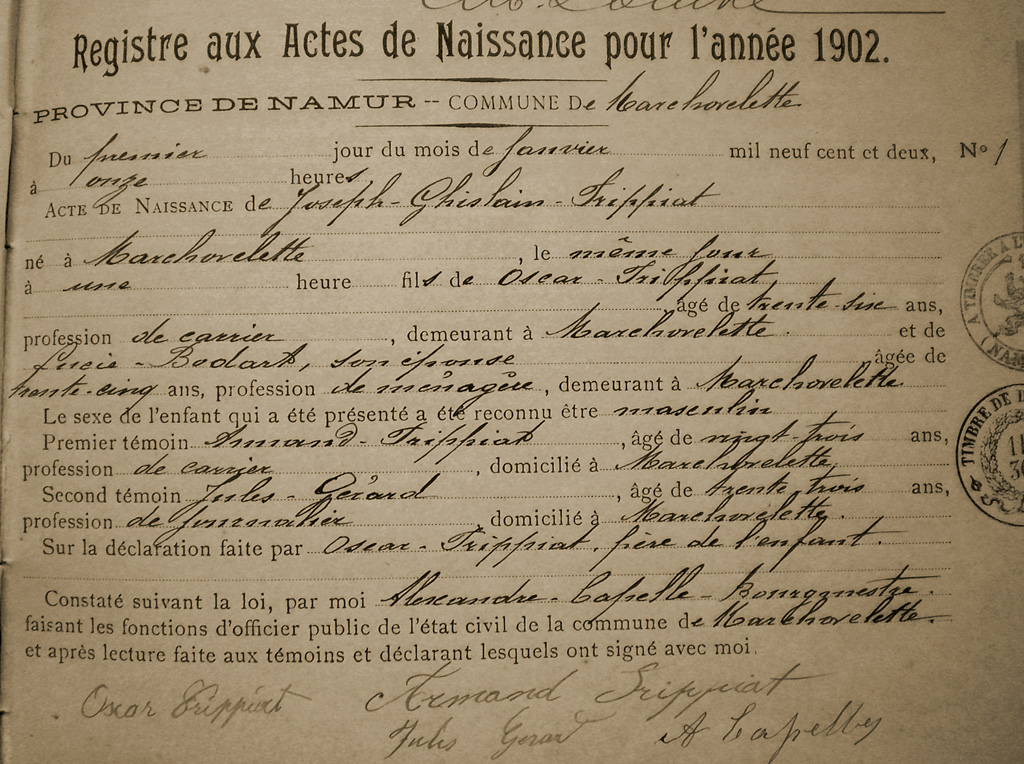 Registre aux Actes de Naissance pour l'année 1902.
PROVINCE DE NAMUR -- COMMUNE De Marchovelette
Du premier jour du mois de Janvier mil neuf cent et deux, No 1
à onze heures
ACTE DE NAISSANCE de Joseph-Ghislain-Trippiat
né à Marchovelette, le même jour
à une heure fils de Oscar-Trippiat
âgé de trente-six ans,
profession de carrier, demeurant à Marchovelette. et de
Lucie-Bodart, son épouse âgée de
trente-cinq ans, profession de ménagère, demeurant à Marchovelette
Le sexe de l'enfant qui a été présenté a été reconnu être masculin
Premier témoin Armand-Trippiat, âgé de vingt-trois ans,
profession de carrier, domicilié à Marchovelette,
Second témoin Jules-Gérard, âgé de trente-trois ans,
profession de journalier, domicilié à Marchovelette.
Sur la déclaration faite par Oscar-Trippiat, père de l'enfant.
Constaté suivant la loi, par moi Alexandre-Capelle-Bourgmestre.
faisant les fonctions d'officier public de l'état civil de la commune de Marchovelette.
et après lecture faite aux témoins et déclarant lesquels ont signé avec moi.
Oscar Trippiat Armand Trippiat
Jules Gerard A Capelle
A TIMBRER A L'
(NAM
TIMBRE DE